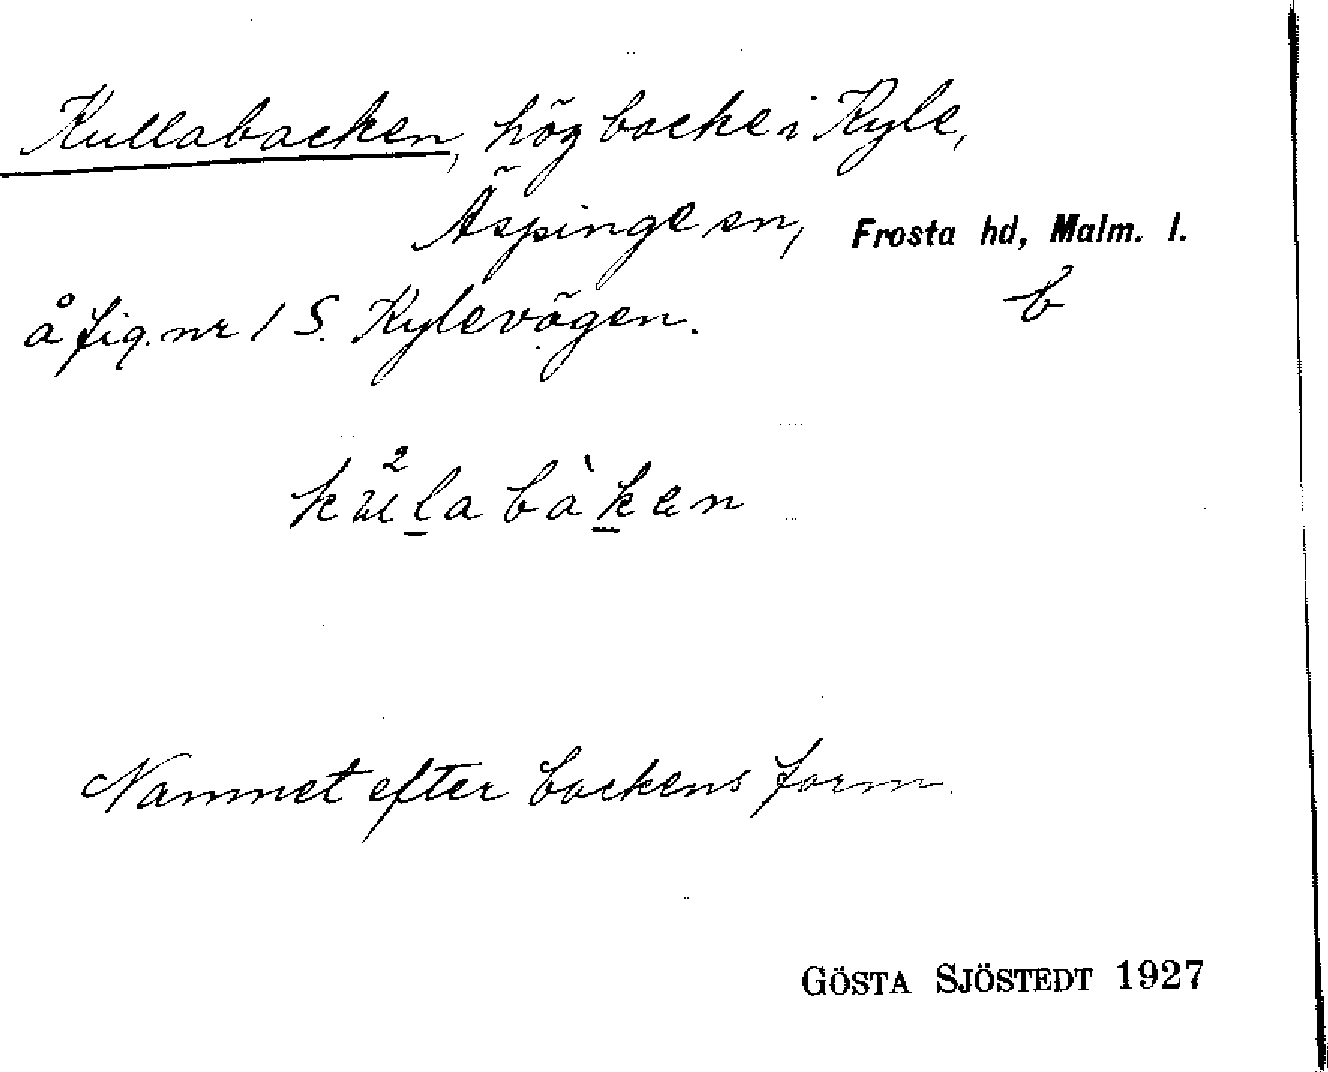 Kullabacken, hög backe i Kyle,
Äspinge sn, Frosta hd, Malm. l.
b
å fig. nr 1 S. Kylevägen.
Namnet efter backens form
GÖSTA SJÖSTEDT 1927